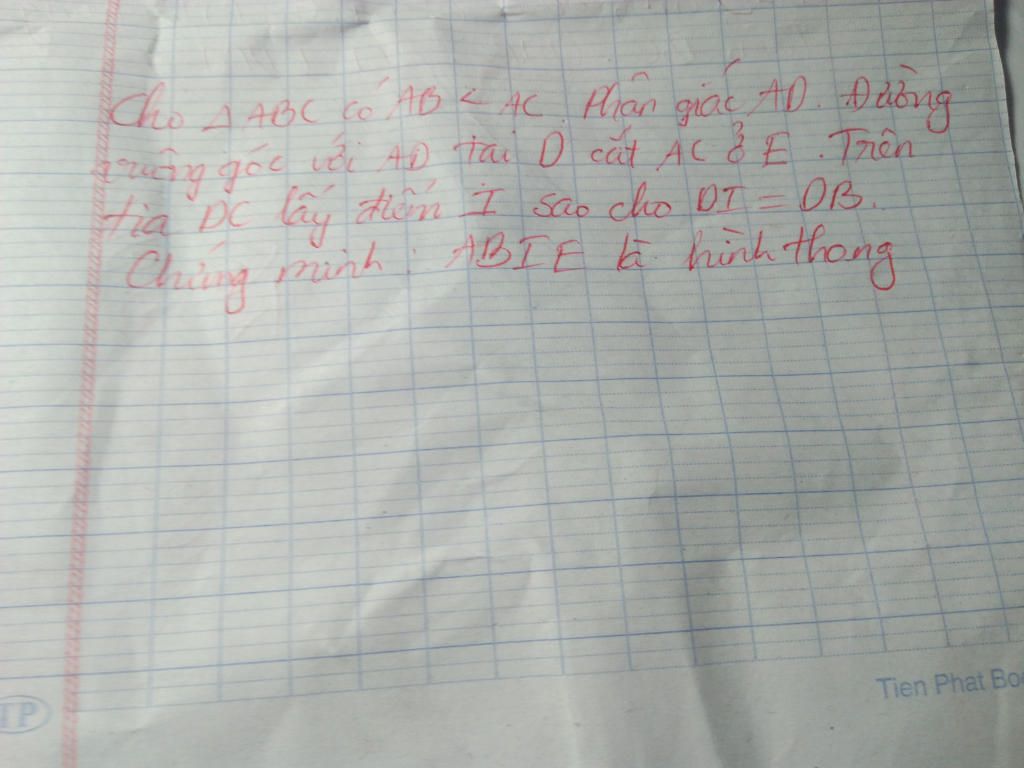 Cho △ABC có AB < AC. Phân giác AD. Đường
vuông góc với AD tại D cắt AC ở E. Trên
tia DC lấy điểm I sao cho DI = DB.
Chứng minh: ABIE là hình thang
Tien Phat Bo
TP